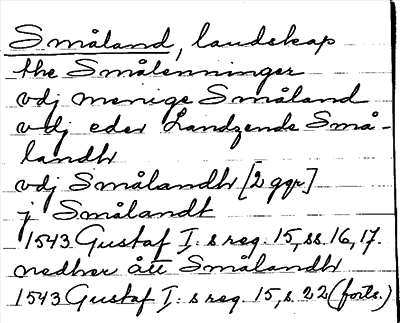 Småland, landskap
the Smålenninger
vdj menige Småland
vdj eder Landzende Små-
landh
vdj Smålandh [2 ggr]
j Smålandt
1543 Gustaf I:s reg. 15, ss. 16, 17.
nedher ått Smålandh
1543 Gustaf I:s reg. 15, s. 22 (forts.)